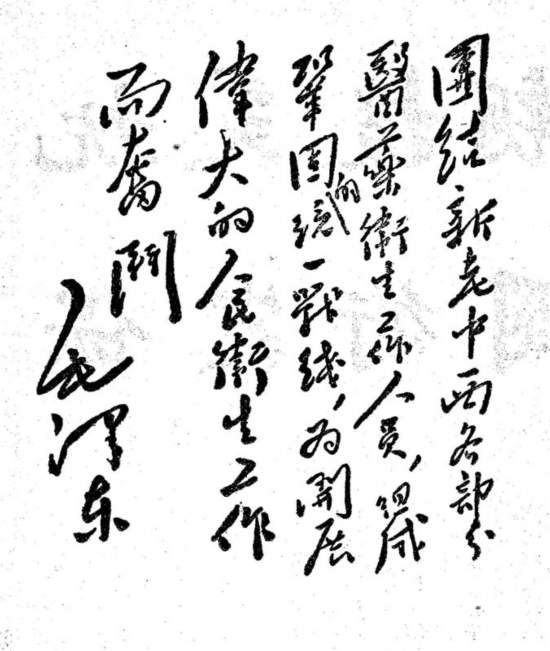 團結新老中西各部分
醫藥衛生工作人員，組成
鞏固的統一戰綫，为開展
偉大的人民衛生工作
而奮鬥
毛澤东